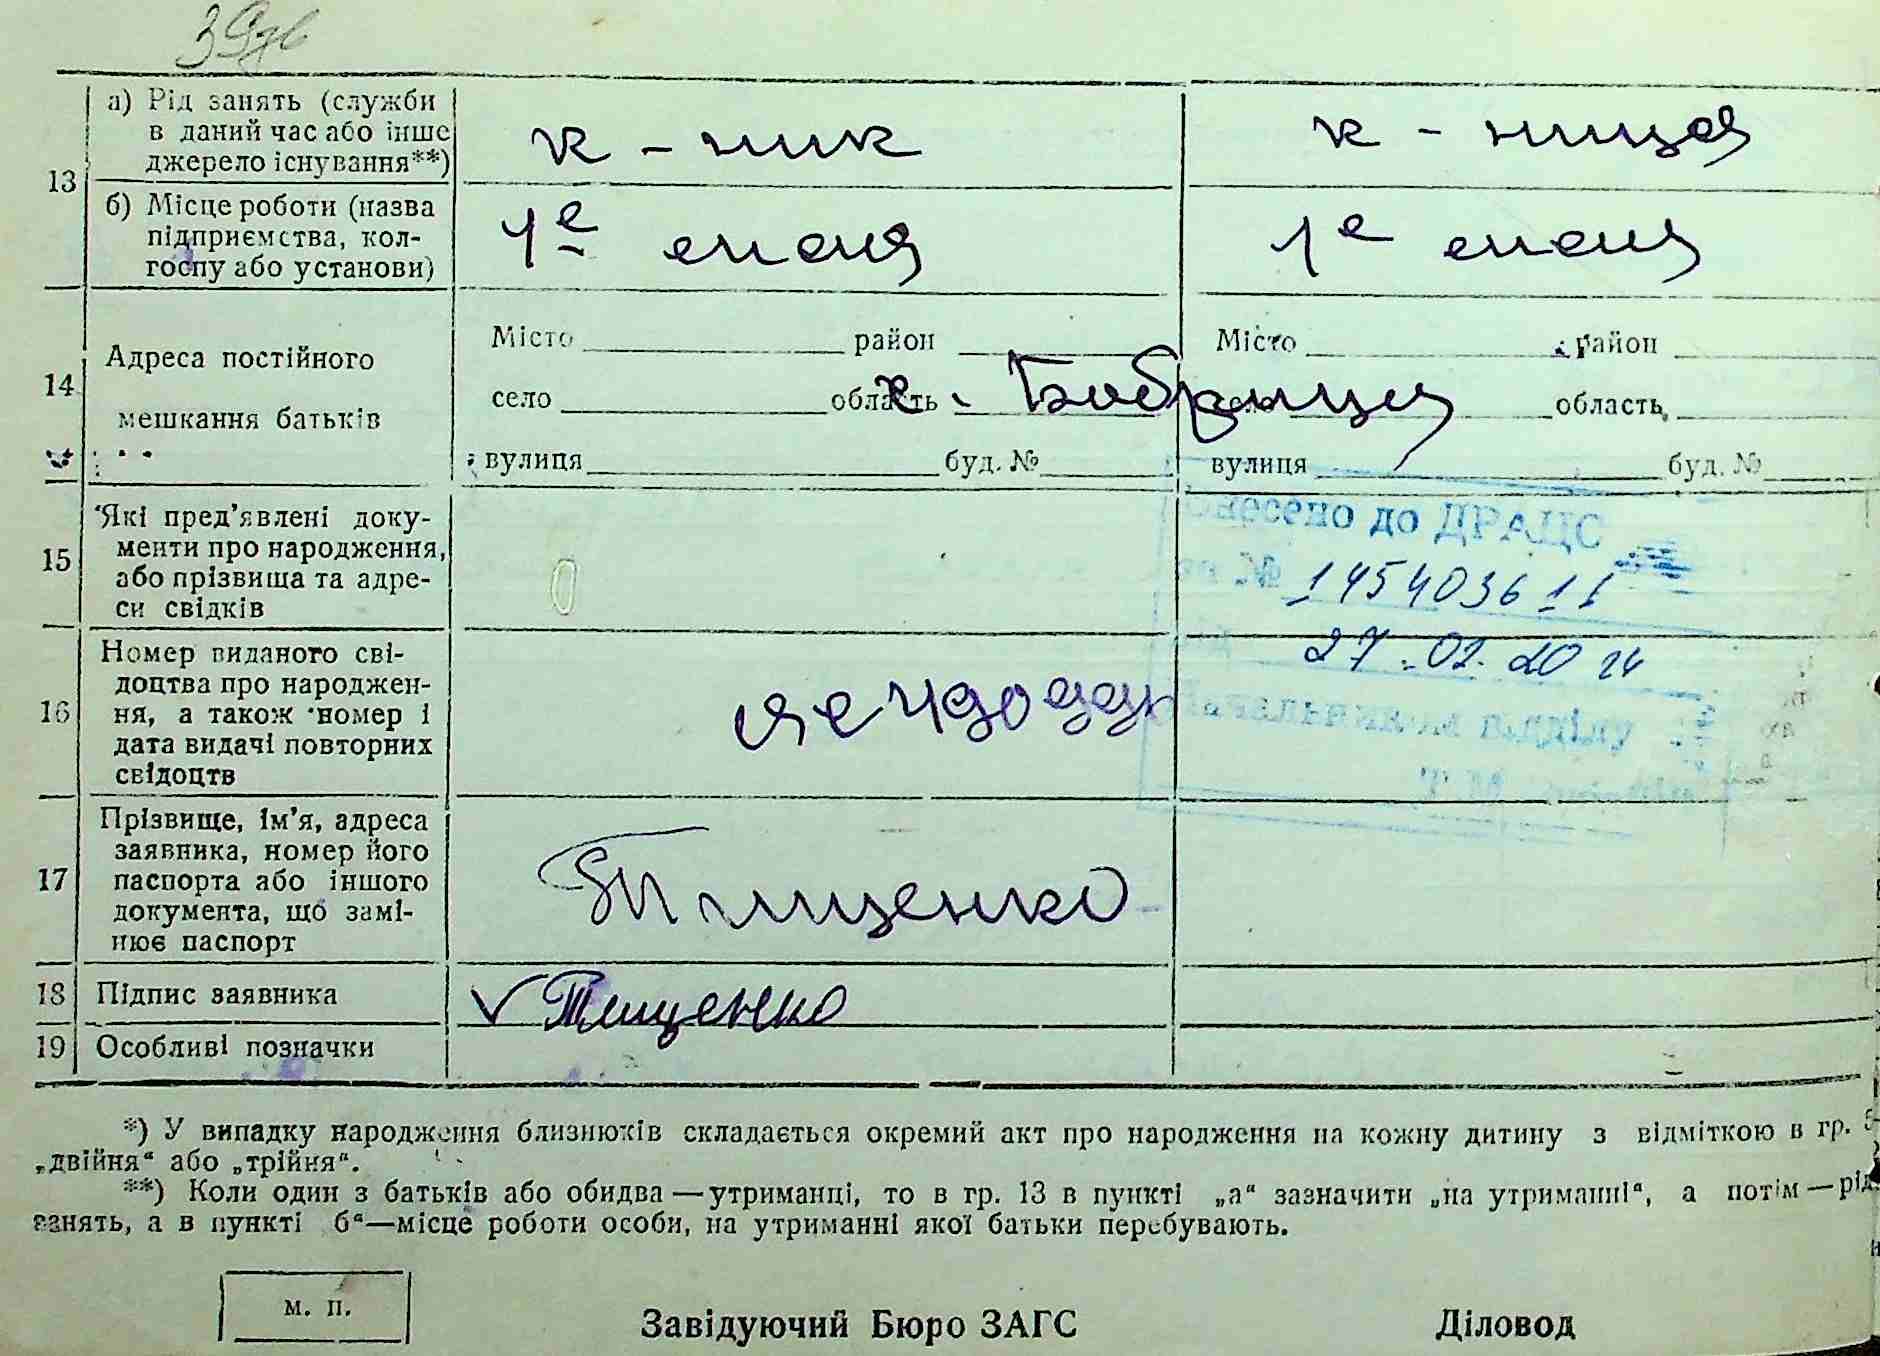 а) Рід занять (служби
в даний час або інше
джерело існування**)
к - ник
к - ница
13
б) Місце роботи (назва
підприємства, кол-
госпу або установи)
1е мая
1е мая
14
Адреса постійного
мешкання батьків
Місто район
село область
вулиця буд. №
Місто район
село область
вулиця буд. №
с. Бобрица
15
Які пред'явлені доку-
менти про народження,
або прізвища та адре-
си свідків
Внесено до ДРАЦС
за № 1454036 11
від 27.02.20 24
Начальник відділу
16
Номер виданого сві-
доцтва про народжен-
ня, а також номер і
дата видачі повторних
свідоцтв
17
Прізвище, ім'я, адреса
заявника, номер його
паспорта або іншого
документа, що замі-
нює паспорт
Тищенко
18 Підпис заявника
Тищенко
19 Особливі позначки
*) У випадку народження близнюків складається окремий акт про народження на кожну дитину з відміткою в гр. 5
„двійня“ або „трійня“.
**) Коли один з батьків або обидва — утриманці, то в гр. 13 в пункті „а“ зазначити „на утриманні“, а потім — рід
занять, а в пункті б“—місце роботи особи, на утриманні якої батьки перебувають.
м. п.
Завідуючий Бюро ЗАГС
Діловод